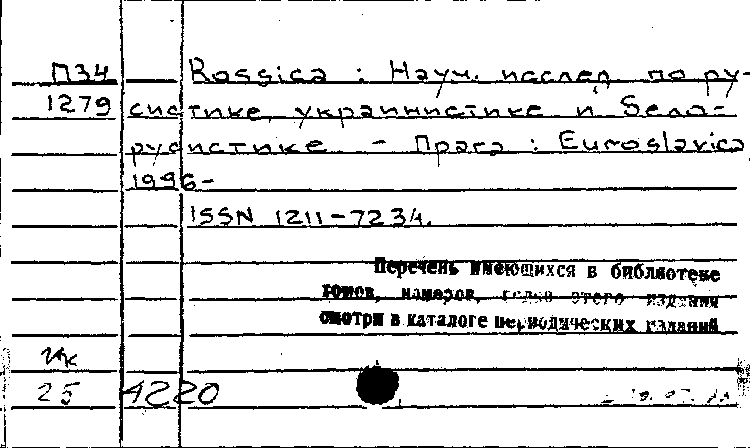 П34 Rossica : Науч. исслед. по ру-
1279 систике, украинистике и бело-
русистике. - Прага : Euroslavica,
1996-
ISSN 1211-7234.
Перечень имеющихся в библиотеке
томов, номеров, годов этого издания
смотри в каталоге периодических изданий
25 4220